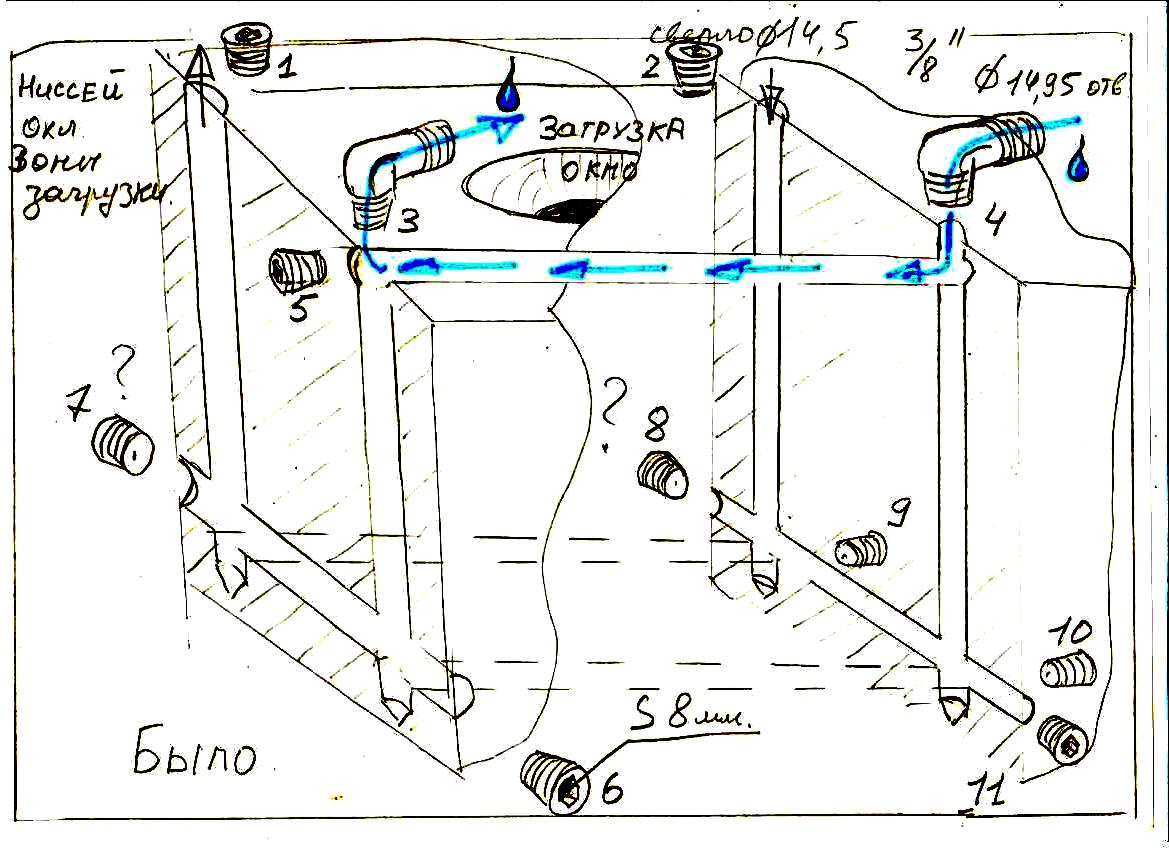 сверло ϕ14,5
3/8"
ϕ 14,95 отв
1
2
Ниссей
охл.
Зоны
загрузки.
Загрузка
окно
3
4
5
?
7
?
8
9
10
S 8 мм.
Было
6
11